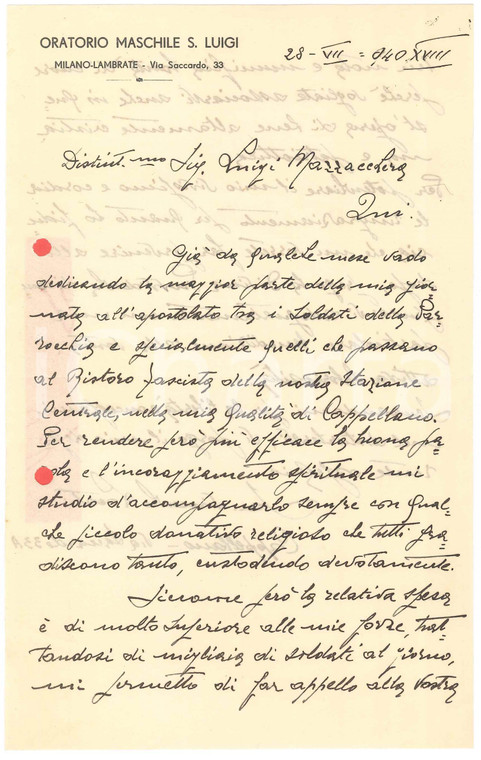 ORATORIO MASCHILE S. LUIGI
MILANO-LAMBRATE - Via Saccardo, 33
28 - VII = 940 XVIII
Distint.mo Sig. Luigi Mazzacchera
Qui.
Già da qualche mese vado
dedicando la maggior parte della mia gior=
nata all'apostolato tra i soldati della Par=
rocchia e specialmente quelli che passano
al Ristoro fascista della nostra Stazione
Centrale, nella mia qualità di Cappellano.
Per rendere però più efficace la buona pa=
rola e l'incoraggiamento spirituale mi
studio d'accompagnarlo sempre con qual=
che piccolo donativo religioso che tutti gra=
discono tanto, custodendo devotamente.
Siccome però la relativa spesa
è di molto superiore alle mie forze, trat=
tandosi di migliaia di soldati al giorno,
mi permetto di far appello alla Vostra